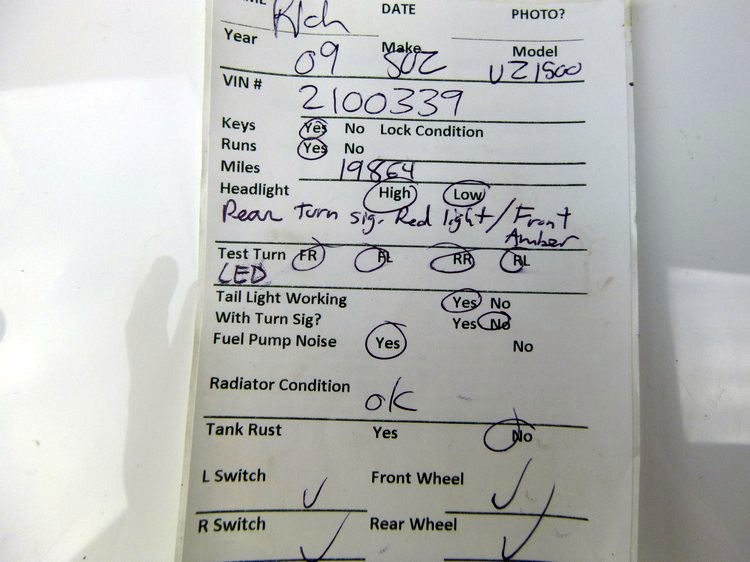 Rich DATE PHOTO?
Year 09 Make SUZ Model VZ1500
VIN # 2100339
Keys Yes No Lock Condition
Runs Yes No
Miles 19864
Headlight High Low
Rear turn sig. Red light / Front
Amber
Test Turn FR FL RR RL
LED
Tail Light Working Yes No
With Turn Sig? Yes No
Fuel Pump Noise Yes No
Radiator Condition ok
Tank Rust Yes No
L Switch ✓ Front Wheel ✓
R Switch ✓ Rear Wheel ✓